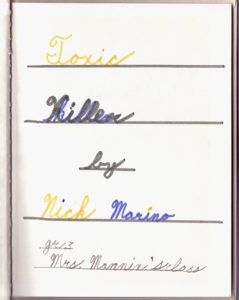 Toxic
Killer
by
Nick Marino
gr. 3
Mrs. Mannin's class